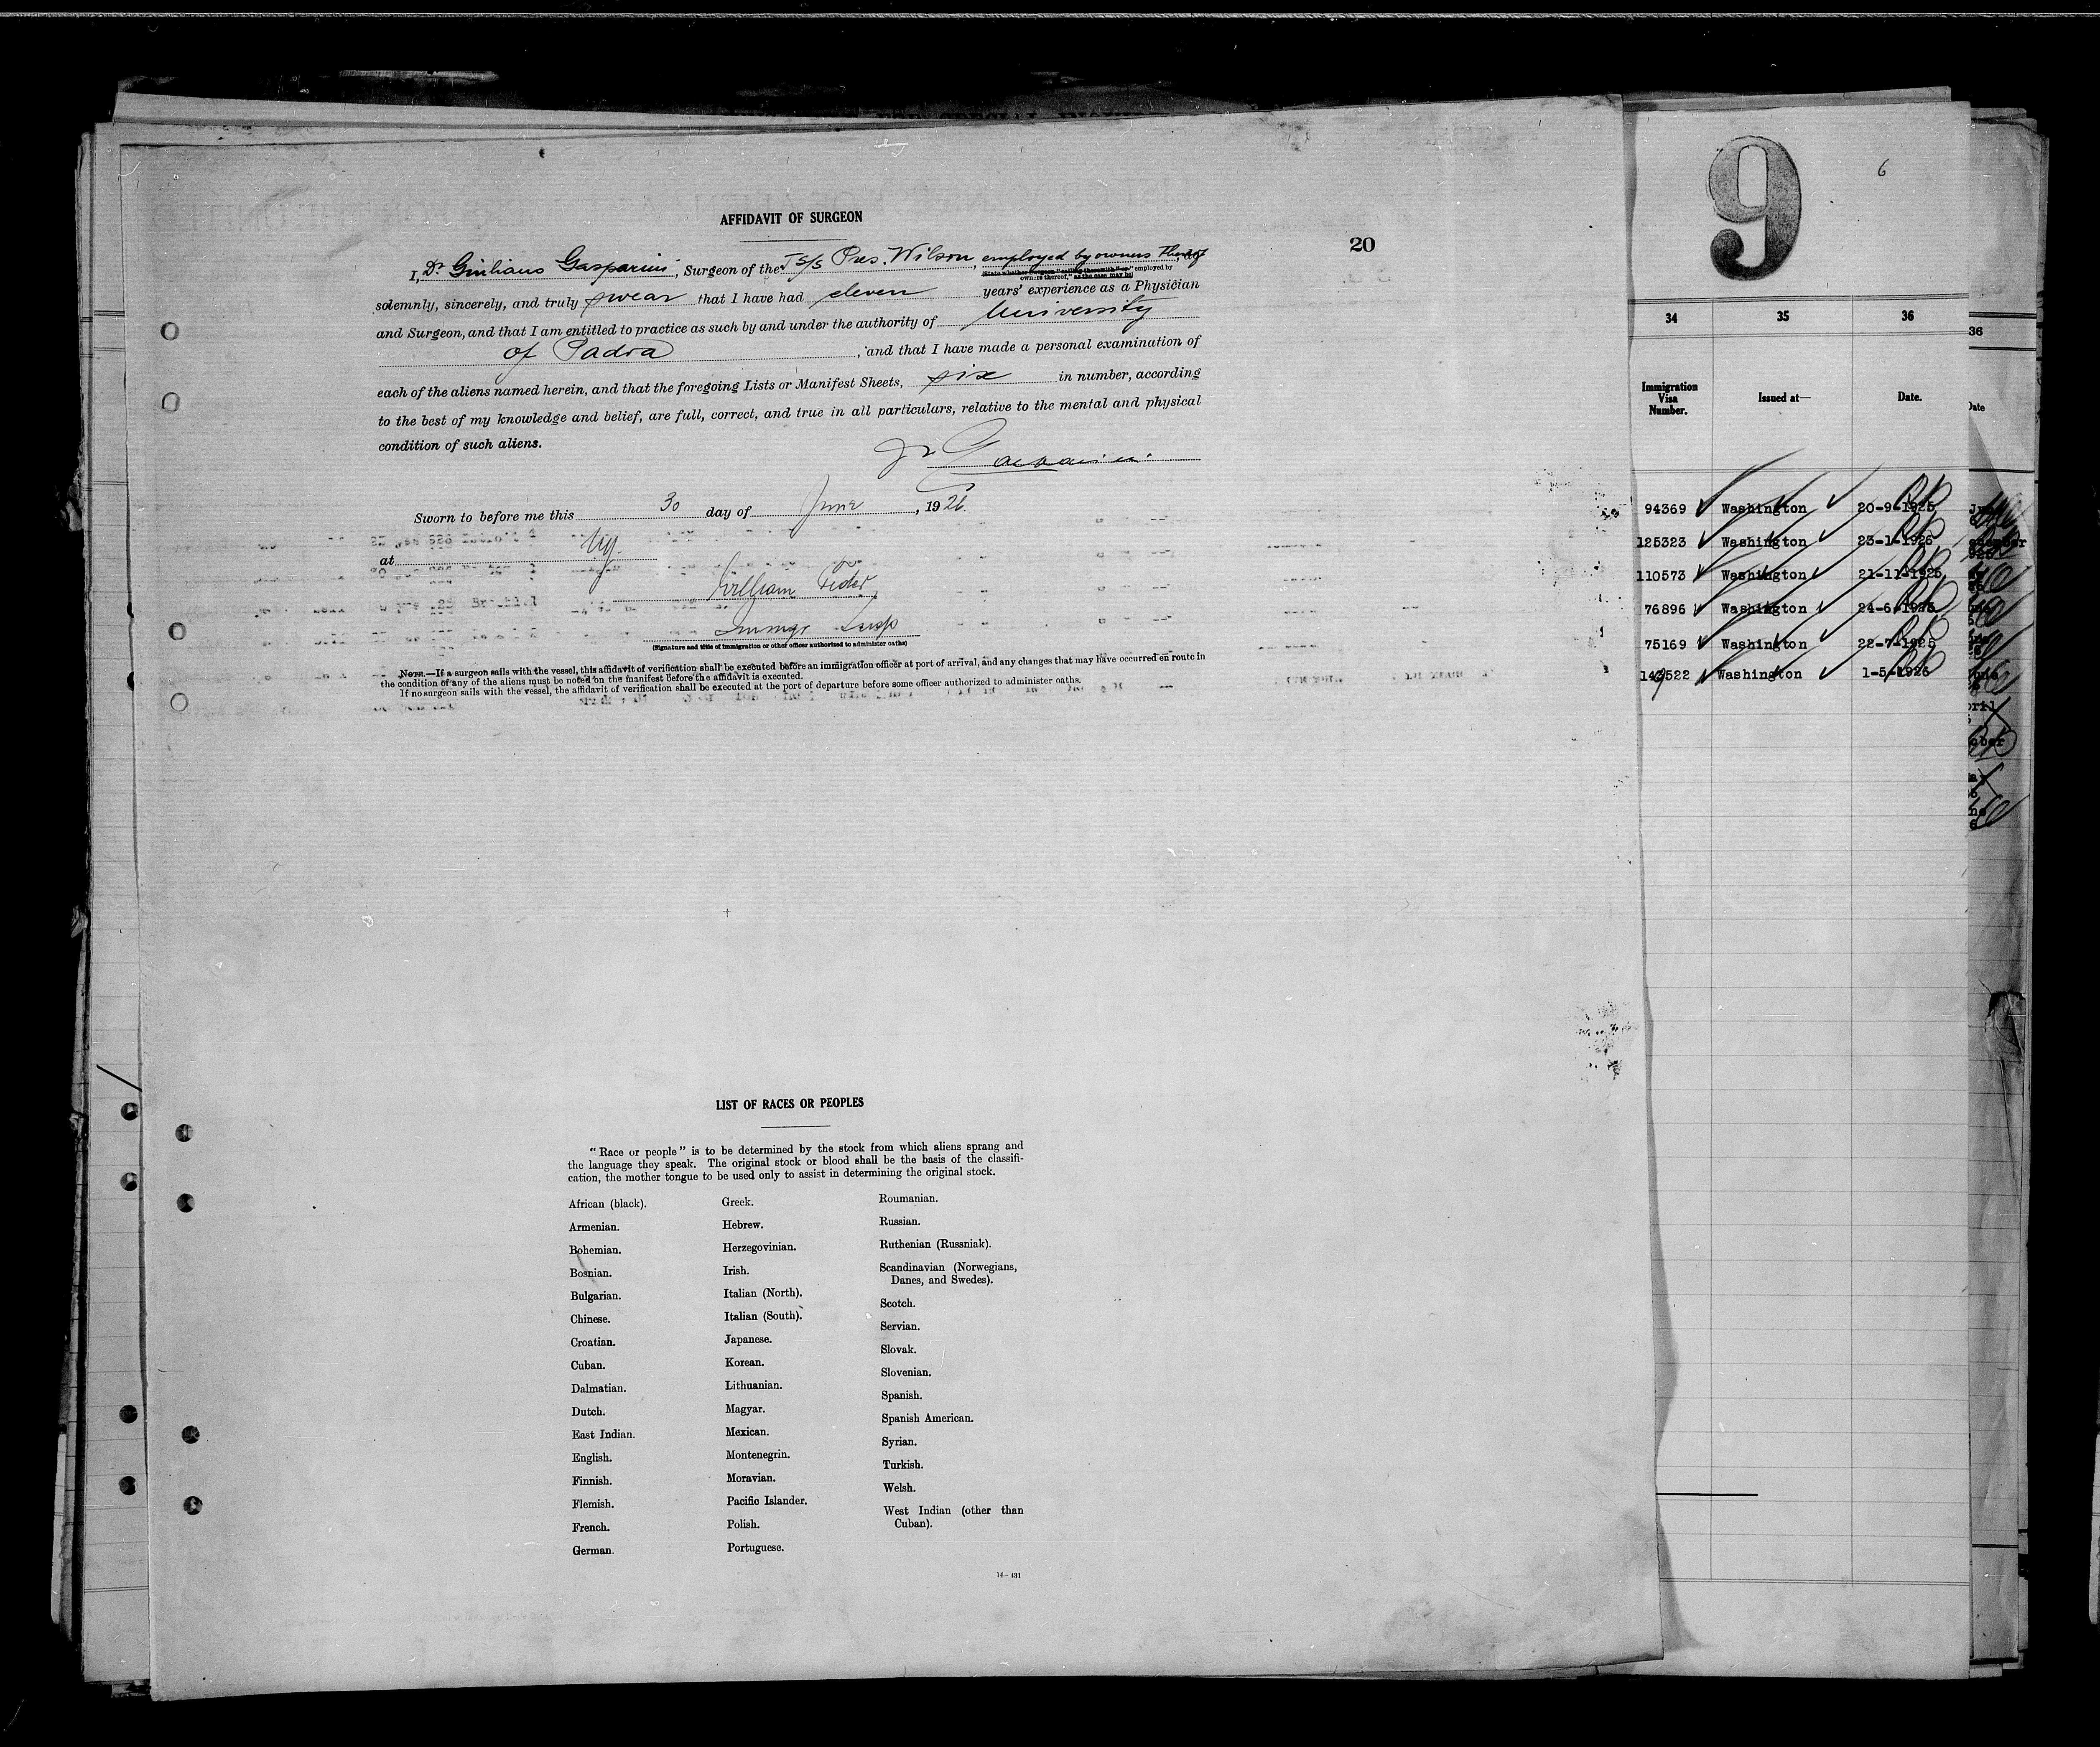 AFFIDAVIT OF SURGEON
20
I, Dr Giuliano Gasparini, Surgeon of the TS/S Pres. Wilson, employed by owners thereof
(State whether surgeon "sailing therewith" or "employed by
owners thereof," as the case may be)
solemnly, sincerely, and truly swear that I have had eleven years' experience as a Physician
and Surgeon, and that I am entitled to practice as such by and under the authority of University
of Padva, and that I have made a personal examination of
each of the aliens named herein, and that the foregoing Lists or Manifest Sheets, six in number, according
to the best of my knowledge and belief, are full, correct, and true in all particulars, relative to the mental and physical
condition of such aliens.
Dr Gasparini
Sworn to before me this 30 day of June, 1926.
at
William
(Signature and title of immigration or other officer authorized to administer oaths)
NOTE.—If a surgeon sails with the vessel, this affidavit of verification shall be executed before an immigration officer at port of arrival, and any changes that may have occurred en route in
the condition of any of the aliens must be noted on the manifest before the affidavit is executed.
If no surgeon sails with the vessel, the affidavit of verification shall be executed at the port of departure before some officer authorized to administer oaths.
LIST OF RACES OR PEOPLES
"Race or people" is to be determined by the stock from which aliens sprang and
the language they speak. The original stock or blood shall be the basis of the classifi-
cation, the mother tongue to be used only to assist in determining the original stock.
African (black).
Armenian.
Bohemian.
Bosnian.
Bulgarian.
Chinese.
Croatian.
Cuban.
Dalmatian.
Dutch.
East Indian.
English.
Finnish.
Flemish.
French.
German.
Greek.
Hebrew.
Herzegovinian.
Irish.
Italian (North).
Italian (South).
Japanese.
Korean.
Lithuanian.
Magyar.
Mexican.
Montenegrin.
Moravian.
Pacific Islander.
Polish.
Portuguese.
Roumanian.
Russian.
Ruthenian (Russniak).
Scandinavian (Norwegians,
Danes, and Swedes).
Scotch.
Servian.
Slovak.
Slovenian.
Spanish.
Spanish American.
Syrian.
Turkish.
Welsh.
West Indian (other than
Cuban).
14—431
9
6
34 35 36
Immigration
Visa
Number.
Issued at—
Date.
94369 Washington 20-9-1925
125323 Washington 23-1-1926
110573 Washington 21-11-1925
76896 Washington 24-6-1925
75169 Washington 22-7-1925
Washington 1-5-1926
36
Date